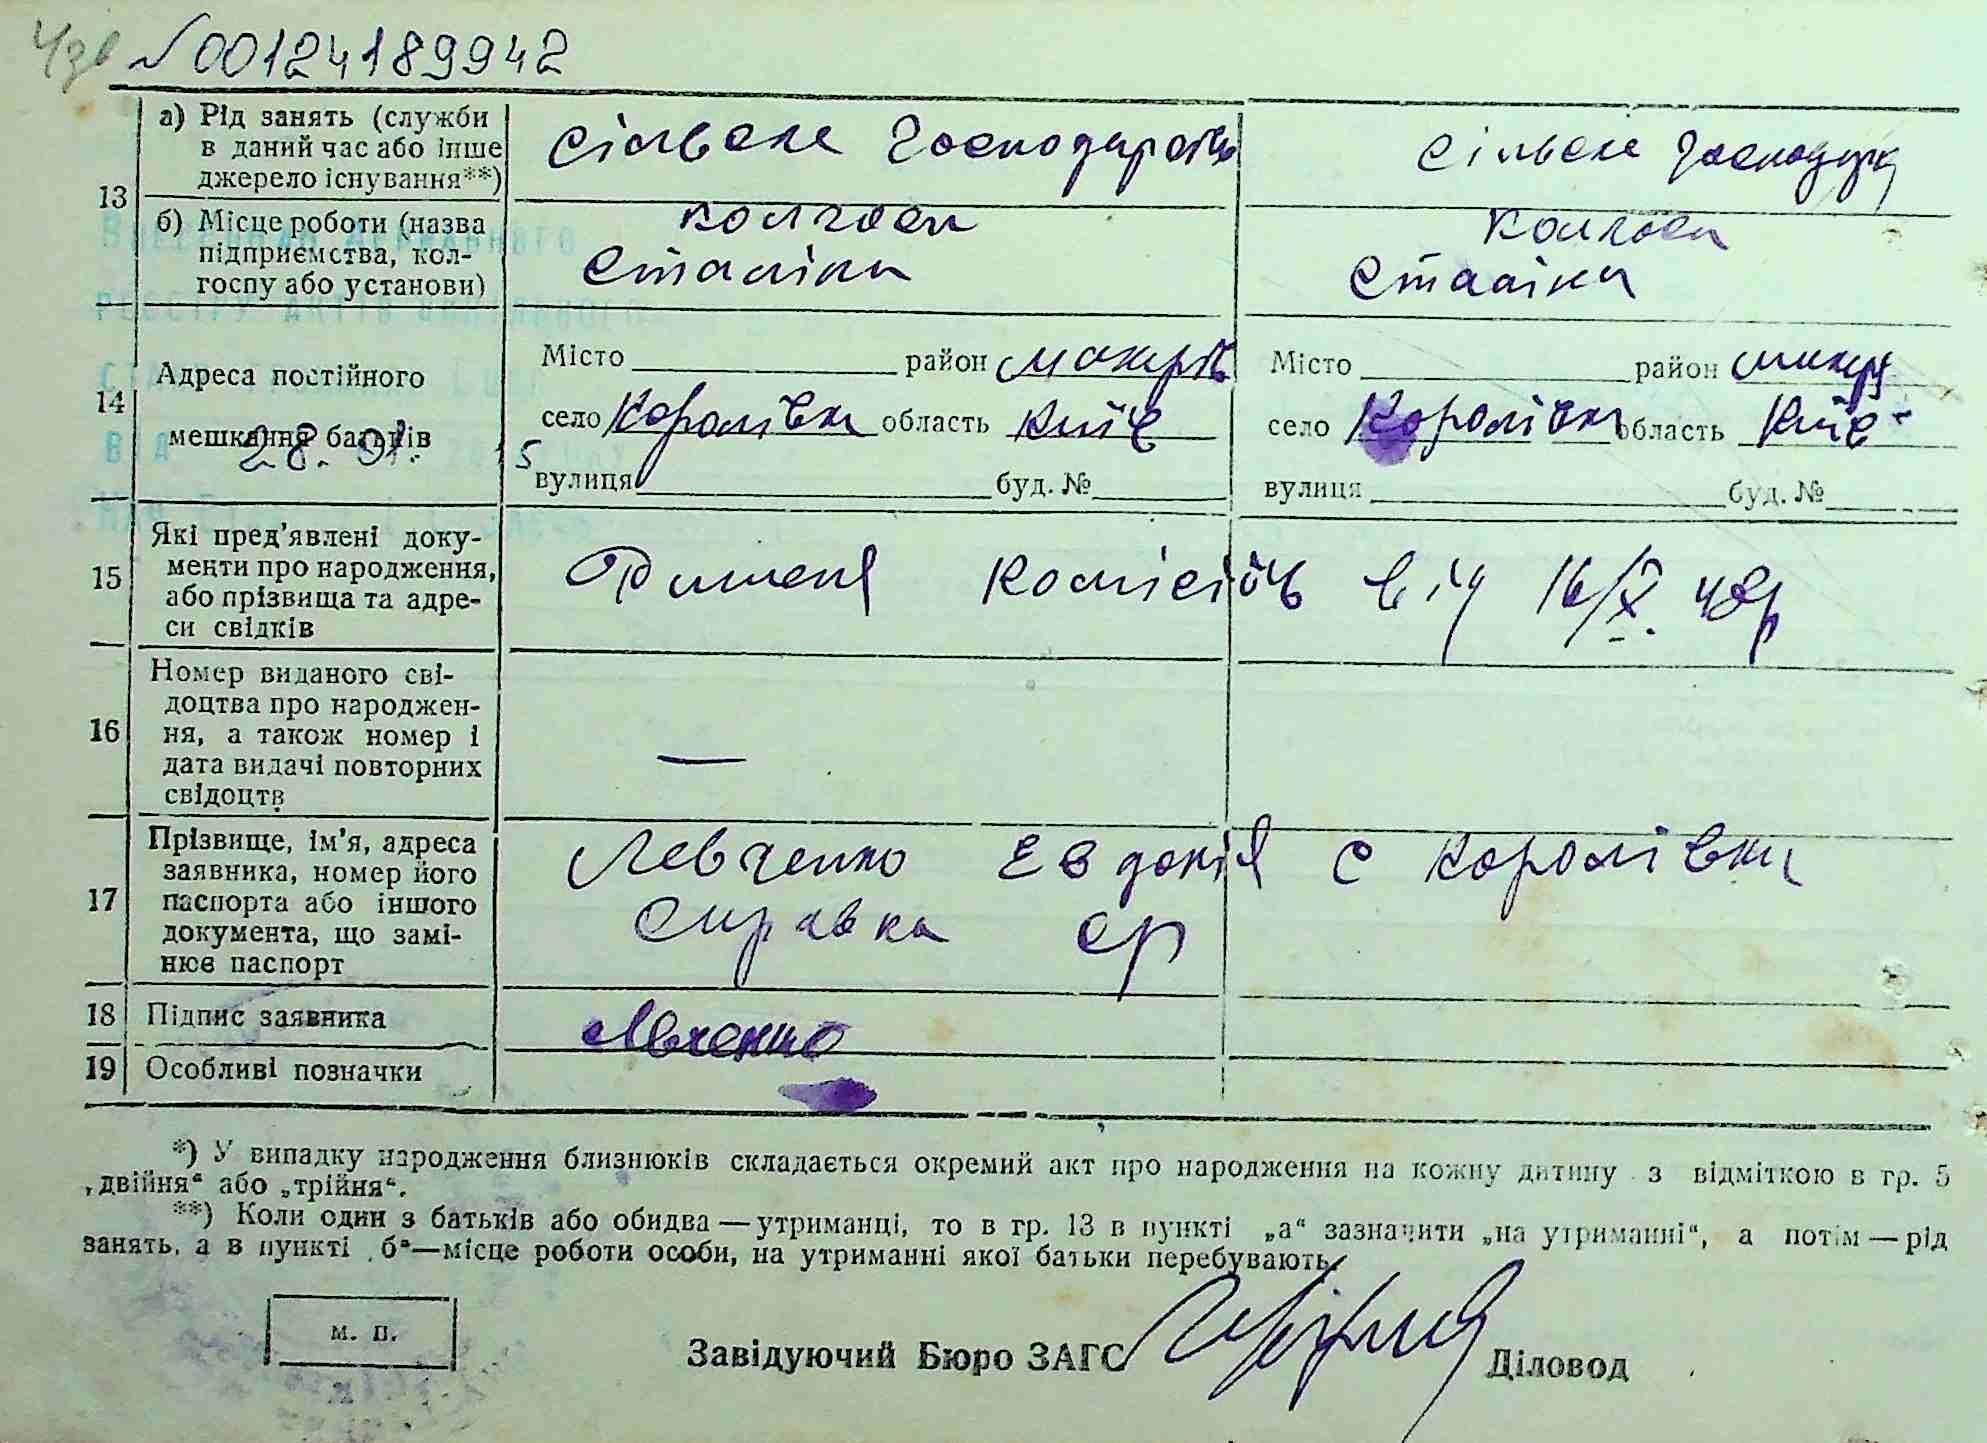 №00124189942
13 а) Рід занять (служби в даний час або інше джерело існування**) сільске господарство сільске господар
б) Місце роботи (назва підприємства, колгоспу або установи) колгосп Сталіна колгосп Сталіна
14 Адреса постійного мешкання батьків
28.01.
Місто район Макарів Місто район Макар
село Королівка область Київ село Королівка область Київ
вулиця буд. № вулиця буд. №
15 Які пред'явлені документи про народження, або прізвища та адреси свідків Рішення комісії від 16/X. 48р
16 Номер виданого свідоцтва про народження, а також номер і дата видачі повторних свідоцтв —
17 Прізвище, ім'я, адреса заявника, номер його паспорта або іншого документа, що замінює паспорт Левченко Евдокія с Королівки
Справка ср
18 Підпис заявника Левченко
19 Особливі позначки
*) У випадку народження близнюків складається окремий акт про народження на кожну дитину з відміткою в гр. 5
„двійня“ або „трійня“.
**) Коли один з батьків або обидва — утриманці, то в гр. 13 в пункті „а“ зазначити „на утриманні“, а потім — рід
занять, а в пункті „б“ — місце роботи особи, на утриманні якої батьки перебувають.
м. п.
Завідуючий Бюро ЗАГС Діловод